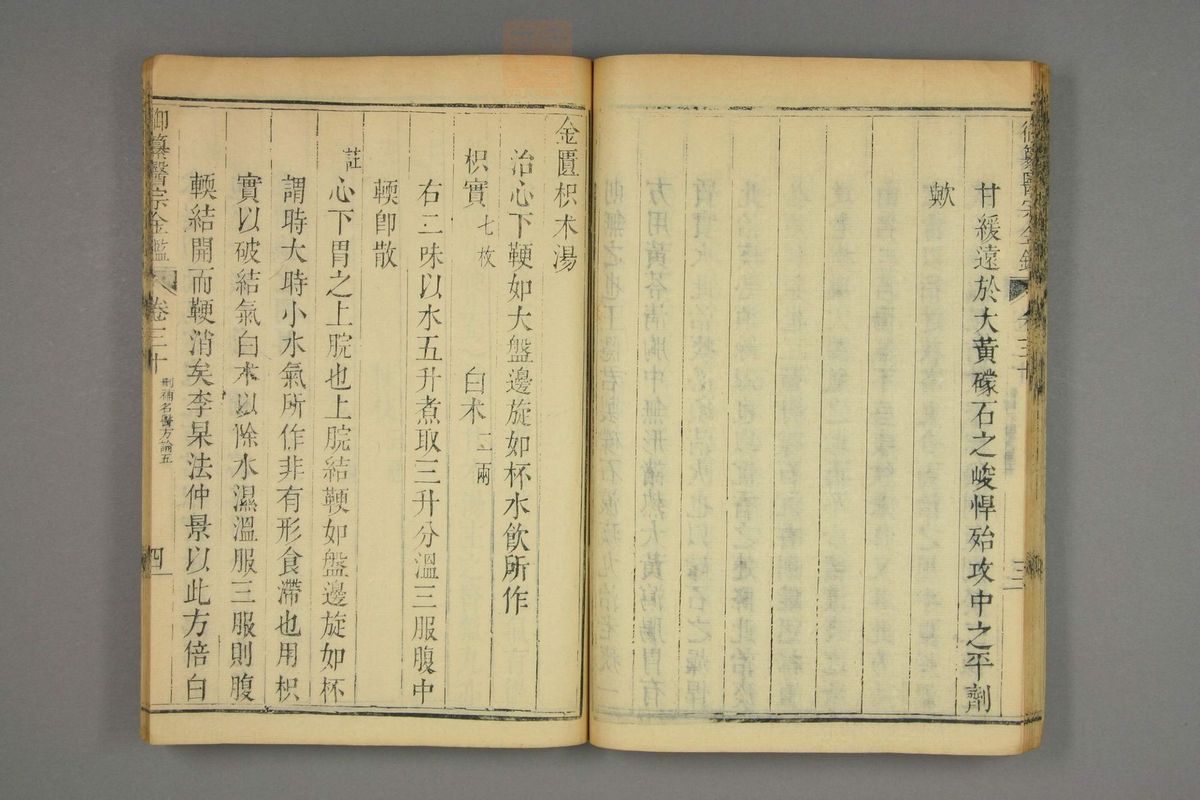 甘緩遠於大黃礞石之峻悍殆攻中之平劑
歟
御纂醫宗金鑑
卷三十
三
金匱枳朮湯
治心下鞕如大盤邊旋如杯水飲所作
枳實七枚 白朮二兩
右二味以水五升煮取三升分溫三服腹中
輭卽散
註心下胃之上脘也上脘結鞕如盤邊旋如杯
謂時大時小水氣所作非有形食滯也用枳
實以破結氣白朮以除水濕溫服三服則腹
輭結開而鞕消矣李杲法仲景以此方倍白
御纂醫宗金鑑
卷三十
刪補名醫方論五
四